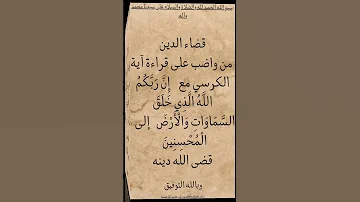 بسم الله الحمد لله والصلاة والسلام على سيدنا محمد
وآله
قضاء الدين
من واضب على قراءة آية
الكرسي مع إِنَّ رَبَّكُمُ
اللَّهُ الَّذِي خَلَقَ
السَّمَاوَاتِ وَالْأَرْضَ إلى
الْمُحْسِنِينَ
قضى الله دينه
وبالله التوفيق